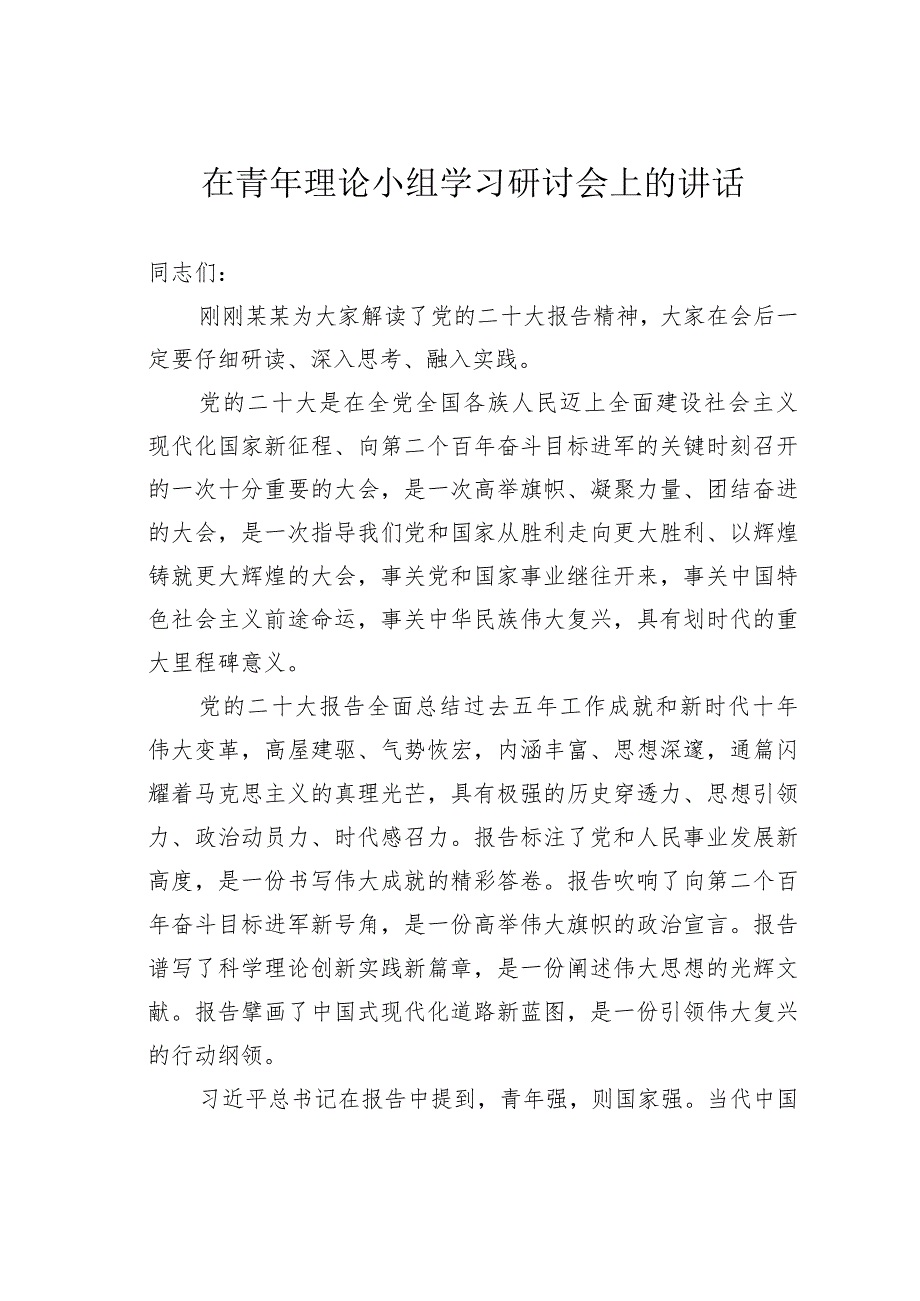 在青年理论小组学习研讨会上的讲话
同志们：
刚刚某某为大家解读了党的二十大报告精神，大家在会后一
定要仔细研读、深入思考、融入实践。
党的二十大是在全党全国各族人民迈上全面建设社会主义
现代化国家新征程、向第二个百年奋斗目标进军的关键时刻召开
的一次十分重要的大会，是一次高举旗帜、凝聚力量、团结奋进
的大会，是一次指导我们党和国家从胜利走向更大胜利、以辉煌
铸就更大辉煌的大会，事关党和国家事业继往开来，事关中国特
色社会主义前途命运，事关中华民族伟大复兴，具有划时代的重
大里程碑意义。
党的二十大报告全面总结过去五年工作成就和新时代十年
伟大变革，高屋建驱、气势恢宏，内涵丰富、思想深邃，通篇闪
耀着马克思主义的真理光芒，具有极强的历史穿透力、思想引领
力、政治动员力、时代感召力。报告标注了党和人民事业发展新
高度，是一份书写伟大成就的精彩答卷。报告吹响了向第二个百
年奋斗目标进军新号角，是一份高举伟大旗帜的政治宣言。报告
谱写了科学理论创新实践新篇章，是一份阐述伟大思想的光辉文
献。报告擘画了中国式现代化道路新蓝图，是一份引领伟大复兴
的行动纲领。
习近平总书记在报告中提到，青年强，则国家强。当代中国